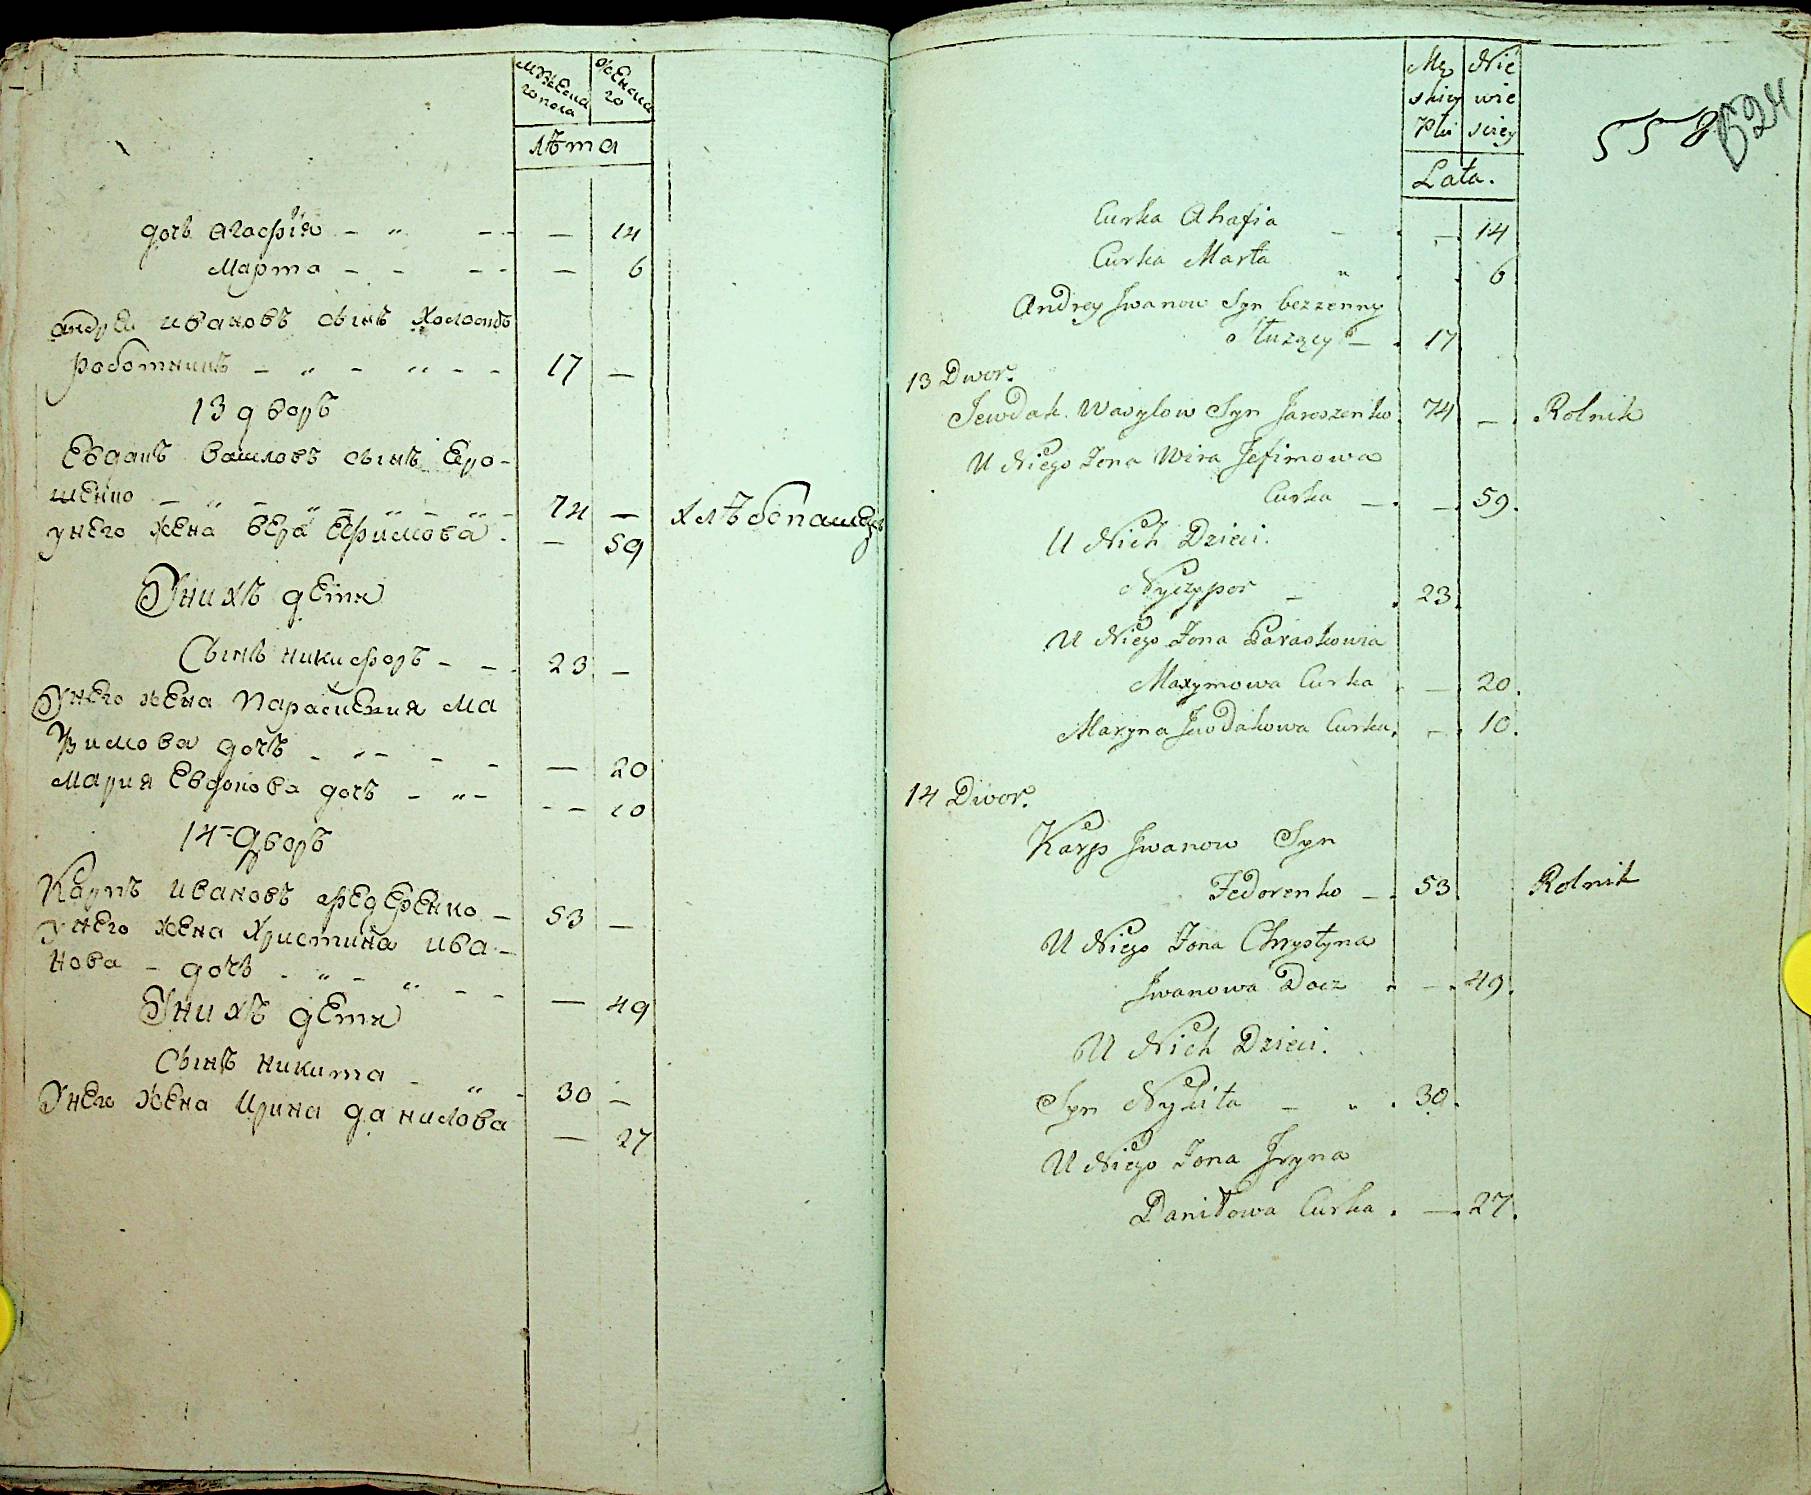 мужеска
го пола
женска
го
лѣта
дочь Агафїя – „ – – — 14
Марта – – – – — 6
андрей ивановъ сынъ холостъ
работникъ – „ – „ – – 17 —
13 дворъ
Евдакъ василовъ сынъ Еро-
шенко – „ – „ – „ – „ – 74 — хлѣбопашецъ
унего жена вера Ефимова – — 59
Унихъ дети
Сынъ никифоръ – – 23 —
Унего жена Параскевия Ма
ѯимова дочь – „ – – – — 20
Мария Евдокова дочь – „ – – – 10
14-дворъ
Карпъ ивановъ федеренко – 53 —
Унего жена Христина ива-
нова – дочь – „ – „ – – — 49
Унихъ дети
Сынъ никита – „ – 30 —
Унего жена Ирина данилова — 27
Mę
skiey
Płci
Nie
wie
sciey
Lata.
558
624
Curka Ahafia – – 14
Curka Marta „ . 6
Andrey Jwanow Syn bezzenny
słuzący – . 17
13 Dwor.
Jewdak Wasylow Syn Jaroszenko. 74 – . Rolnik
U Niego Zona Wira Jefimowa
Curka – . – . 59.
U Nich Dzieci.
Nyczypor – . 23.
U Niego Zona Paraskowia
Maxymowa Curka . – 20.
Maryna Jewdakowa Curka. – . 10.
14 Dwor.
Karp Jwanow Syn
Fedorenko – . 53. Rolnik
U Niego Zona Chrystyna
Jwanowa Docz . – . 49.
U Nich Dzieci.
Syn Nykita – „ . 30.
U Niego Zona Jryna
Daniłowa Curka . – . 27.